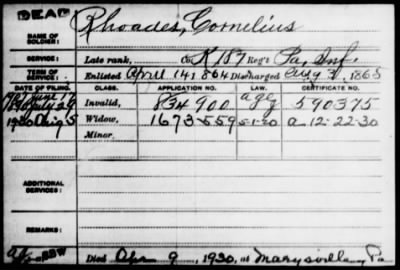 DEAD
Rhoades, Cornelius
NAME OF SOLDIER:
SERVICE: Late rank, Co. K 187 Reg't Pa. Inf.
TERM OF SERVICE: Enlisted April 14 1864 Discharged Aug 3, 1865
DATE OF FILING. CLASS. APPLICATION NO. LAW. CERTIFICATE NO.
1907 June 17
July 26 Invalid, 834900 age 590375
1920 Aug 5 Widow, 1673559 5-1-20 a. 12-22-30
Minor.
ADDITIONAL SERVICES:
REMARKS:
BBW Died Apr 9, 1920, at Marysville, Pa